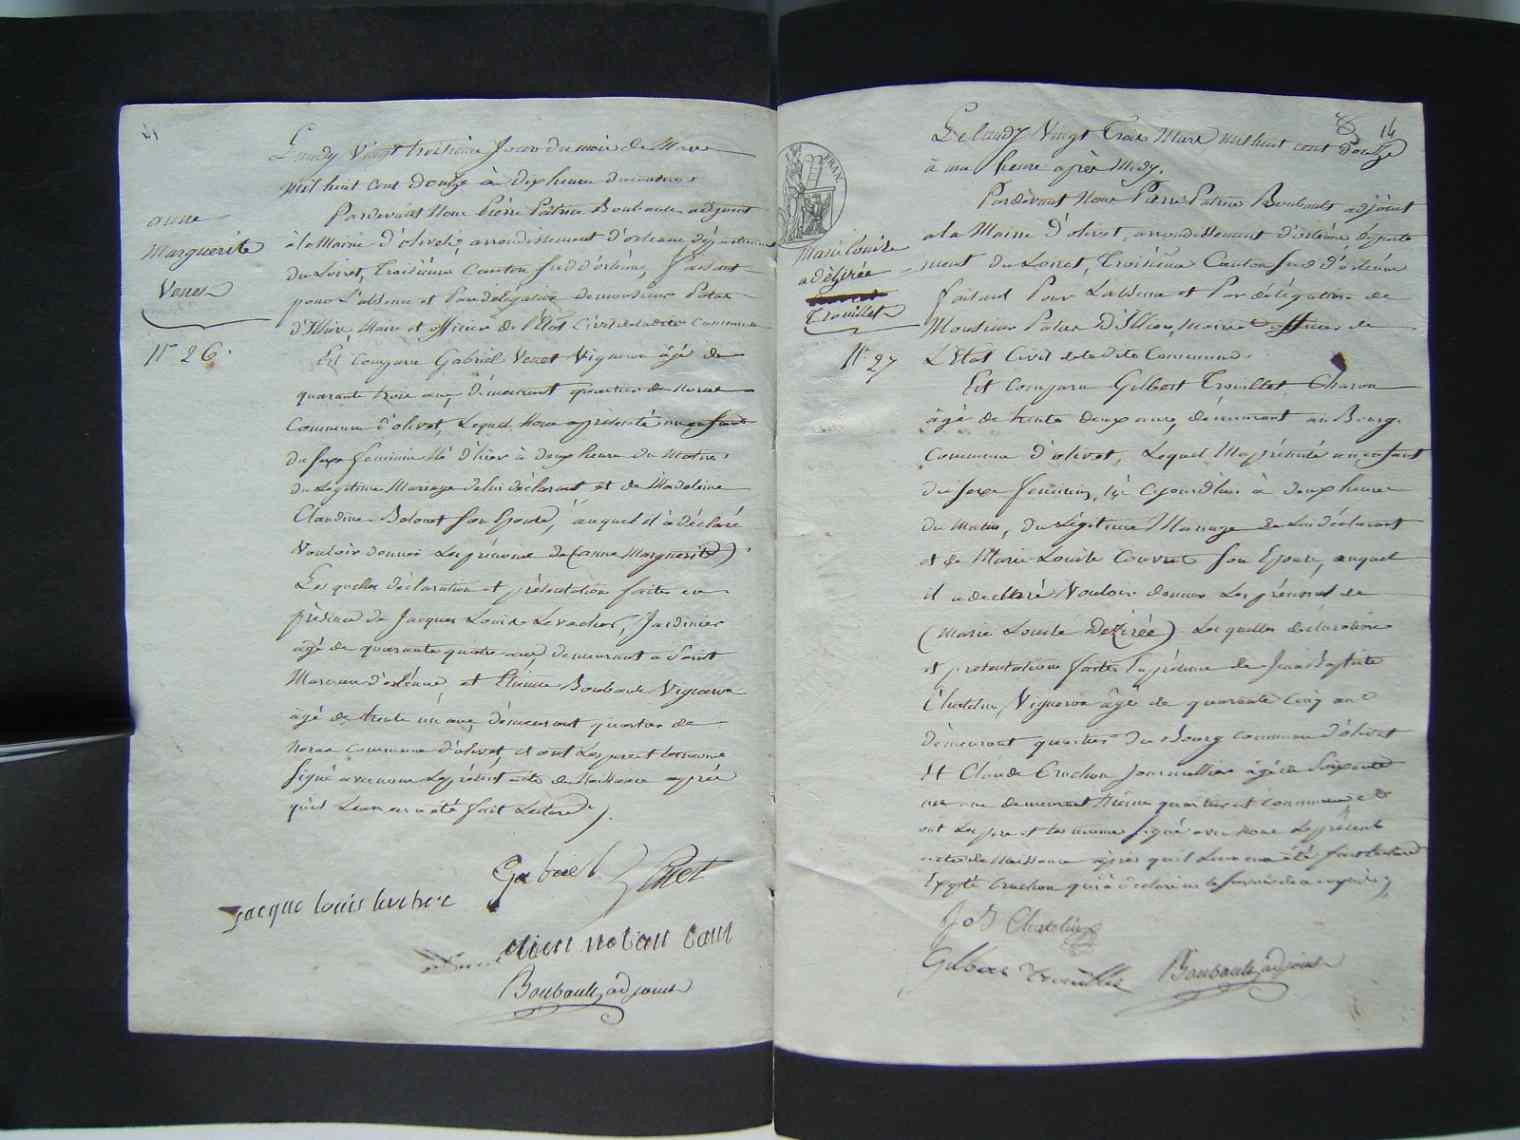 Lundy Vingt troisieme Jour du mois de Mars
mil huit cent douze à dix heures du matin
Pardevant Nous Pierre Patrice Boubault adjoint
à la Mairie d'olivet, arrondissement d'orleans, département
du Loiret, Troisième Canton sud d'orléans, faisant
pour L'absence et Par délégation de monsieur Patas
d'Illiers, Maire et officier de l'Etat Civil de ladite Commune
anne
Marguerite
Venet
N° 26.
Est Comparu Gabriel Venet Vigneron âgé de
quarante trois ans, demeurant quartier de
Commune d'olivet, Lequel Nous a présenté un enfant
du sexe féminin Né d'hier à deux heures du Matin
du Légitime Mariage de lui déclarant et de Madeleine
Claudine son Epouse, auquel il à déclaré
Vouloir donner Les prénoms de (anne Marguerite)
Les quelles déclaration et présentation faites en
présence de Jacques Louis Levacher, Jardinier
âgé de quarante quatre ans, demeurant à Saint
Marceau d'orléans, et Etienne Vigneron
âgé de trente un ans, demeurant quartier de
Commune d'olivet, et ont Les pere et temoins
signé avec nous Le présent acte de Naissance après
qu'il Leur en a été fait Lecture.
Gabriel Venet
Jacque louis
Boubault adjoint
14
Le Lundy Vingt Trois Mars mil huit cent douze
à une heure après Midy.
Pardevant Nous Pierre Patrice Boubault adjoint
a la Mairie d'olivet, arrondissement d'orléans, départe
ment du Loiret, Troisième Canton sud d'orléans
faisant Pour L'absence et Par délégation de
Monsieur Patas D'Illiers, Maire et officier de
L'Etat Civil de ladite Commune.
FRAN
Marie Louise
adézirée
Trouillet
N° 27
Est Comparu Gilbert Trouillet Charon
âgé de trente deux ans, demeurant au Bourg
Commune d'olivet, Lequel M'a présenté un enfant
du sexe féminin, né ce jourd'hui à deux heures
du Matin, du Légitime Mariage de Lui déclarant
et de Marie Louise son Epouse, auquel
il a déclaré Vouloir donner Les prénoms de
(Marie Louise Dezirée) Les quelles déclaration
et présentation faites En présence de Jean Baptiste
Chatelin, Vigneron âgé de quarante Cinq ans
demeurant quartier du Bourg commune d'olivet
Et Claude Cruchon Journallier âgé de Soixante
ans demeurant Même quartier et Commune et
ont Les pere et temoins signé avec nous Le présent
acte de Naissance après qu'il Leur en a été fait Lecture
Excepté Cruchon qui a déclaré ne le savoir
J B Chatelin
Gilbert Trouillet
Boubault adjoint